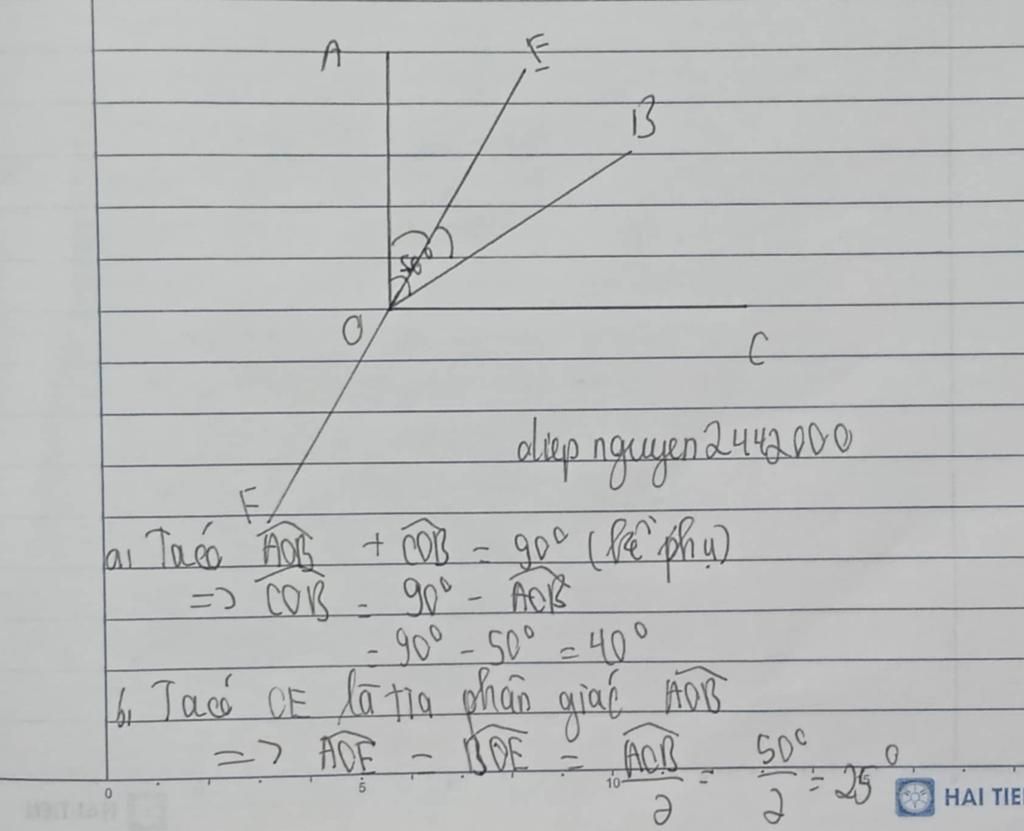 A
E
B
50°
O
C
diepnguyen2442000
F
a, Ta có AOB + COB = 90° (kề phụ)
=> COB = 90° - AOB
= 90° - 50° = 40°
b, Ta có OE là tia phân giác AOB
=> AOE = BOE = AOB/2 = 50°/2 = 25°
0 5 10
HAI TIE